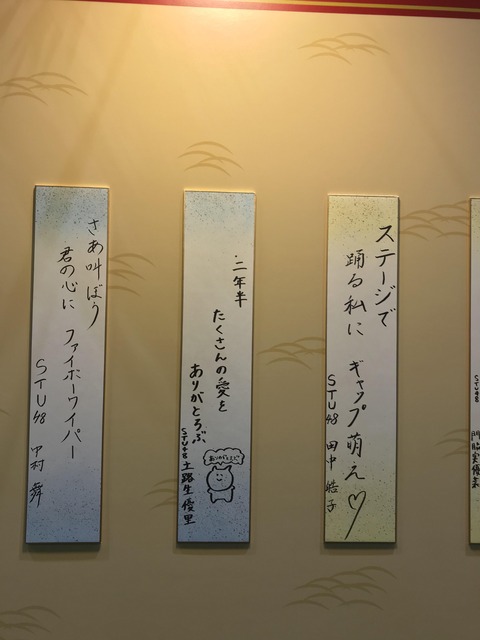 STU48 門脇実優菜
ステージで
踊る私に ギャップ萌え♡
STU48 田中 皓子
二年半
たくさんの愛を
ありがとろぶ
STU48 土路生優里
さあ叫ぼう
君の心に ファイボーワイパー
STU48 中村 舞